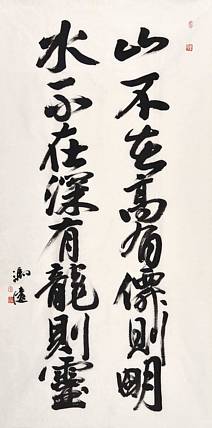 山不在高有僊則明
水不在深有龍則靈